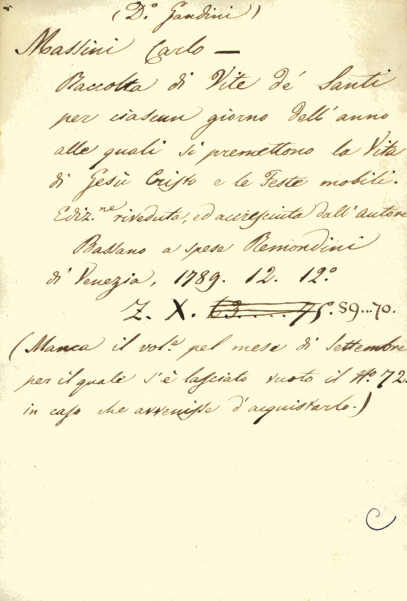 (D.º Gandini)
Massini Carlo —
Raccolta di Vite de' Santi
per ciascun giorno dell'anno
alle quali si premettono la Vita
di Gesù Cristo e le Feste mobili.
Ediz.ne riveduta, ed accresciuta dall'autore
Bassano a spese Remondini
di Venezia, 1789. 12. 12.º
Z. X. 63....75. 59..70.
(Manca il vol.e pel mese di Settembre
per il quale s'è lasciato vuoto il Nº. 72.
in caso che avvenisse d'acquistarlo.)
C